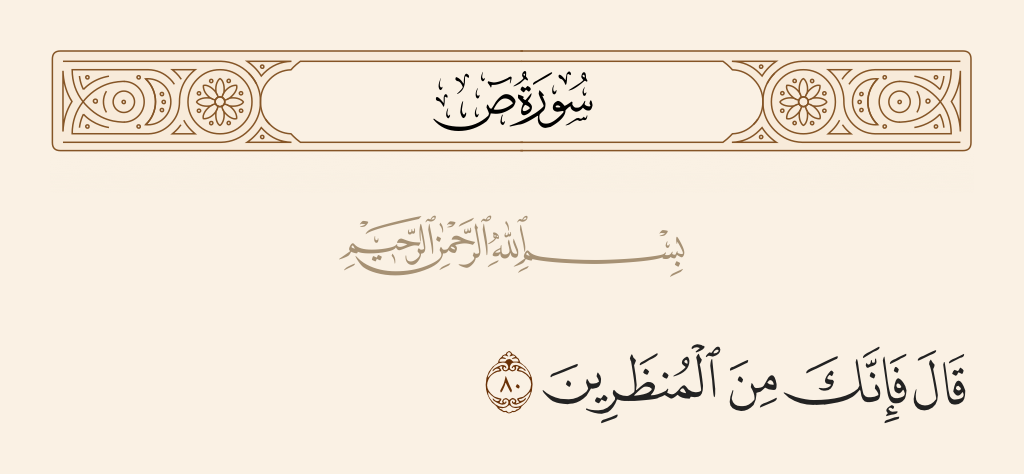 سُورَةُ صٓ
بِسْمِ ٱللَّهِ ٱلرَّحْمَٰنِ ٱلرَّحِيمِ
قَالَ فَإِنَّكَ مِنَ ٱلْمُنظَرِينَ ٨٠